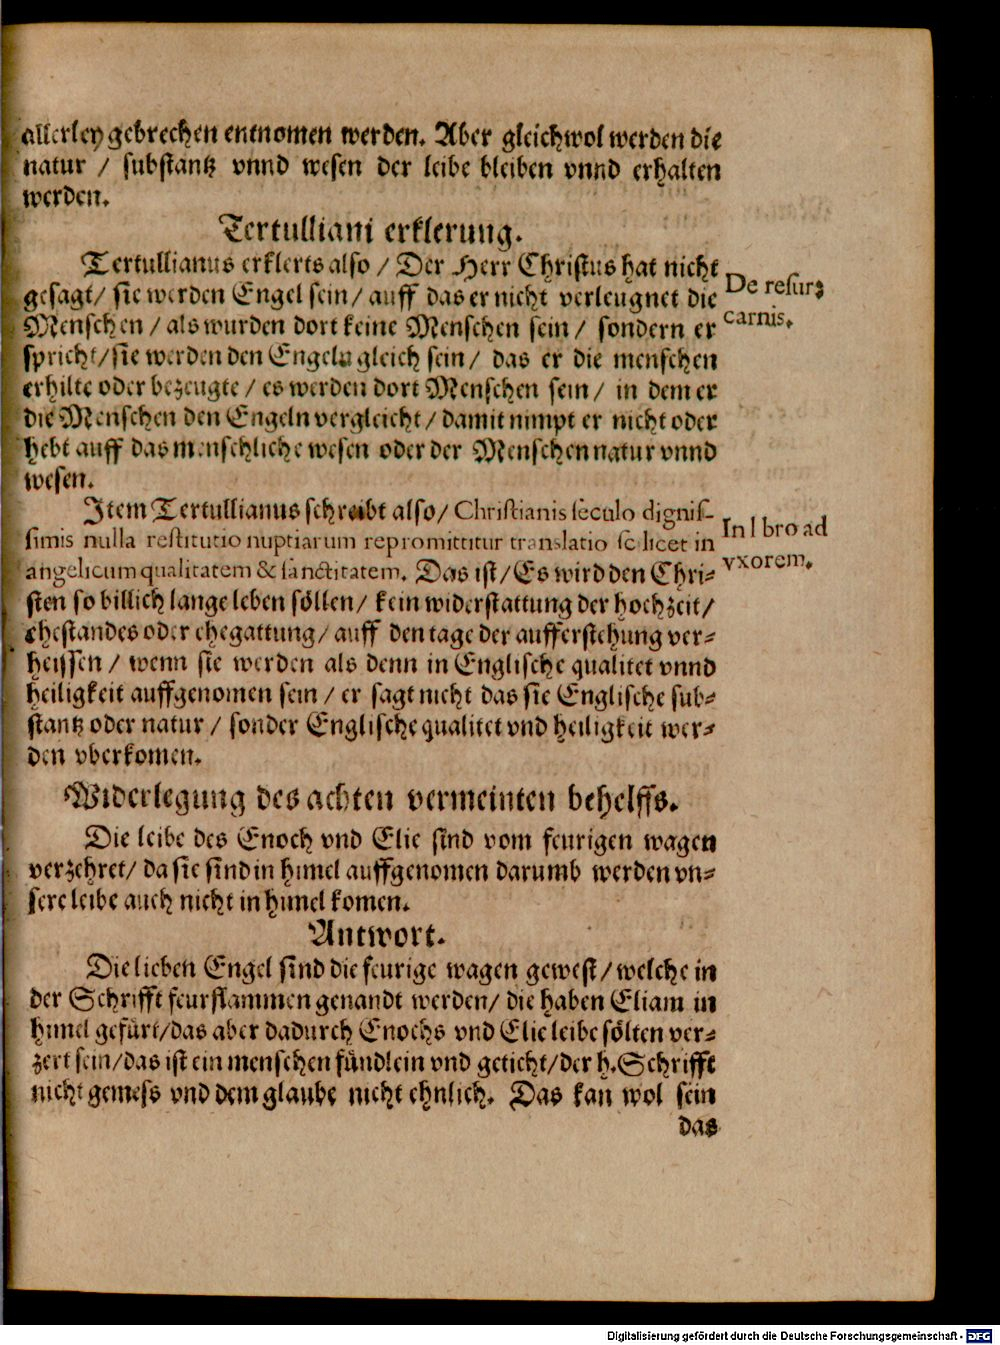 allerley gebrechen entnomen werden. Aber gleichwol werden die
natur / substantz vnnd wesen der leibe bleiben vnnd erhalten
werden.
Tertulliani erklerung.
Tertullianus erklerts also / Der Herr Christus hat nicht
gesagt / sie werden Engel sein / auff das er nicht verleugnet die
Menschen / als wurden dort keine Menschen sein / sondern er
spricht / sie werden den Engeln gleich sein / das er die menschen
erhilte oder bezeugte / es werden dort Menschen sein / in dem er
die Menschen den Engeln vergleicht / damit nimpt er nicht oder
hebt auff das menschliche wesen oder der Menschen natur vnnd
wesen.
De resur:
carnis.
Item Tertullianus schreibt also / Christianis seculo dignis-
simis nulla restitutio nuptiarum repromittitur translatio scilicet in
angelicum qualitatem & sanctitatem. Das ist / Es wird den Chri-
sten so billich lange leben söllen / kein widerstattung der hochzeit /
ehestandes oder ehegattung / auff den tage der aufferstehung ver-
heissen / wenn sie werden als denn in Englische qualitet vnnd
heiligkeit auffgenomen sein / er sagt nicht das sie Englische sub-
stantz oder natur / sonder Englische qualitet vnd heiligkeit wer-
den vberkomen.
In libro ad
vxorem.
Widerlegung des achten vermeinten behelffs.
Die leibe des Enoch vnd Elie sind vom feurigen wagen
verzehret / da sie sind in himel auffgenomen darumb werden vn-
sere leibe auch nicht in himel komen.
Antwort.
Die lieben Engel sind die feurige wagen gewest / welche in
der Schrifft feurflammen genandt werden / die haben Eliam in
himel gefürt / das aber dadurch Enochs vnd Elie leibe sölten ver-
zert sein / das ist ein menschen fündlein vnd geticht / der h. Schrifft
nicht gemess vnd dem glaube nicht ehnlich. Das kan wol sein
das
Digitalisierung gefördert durch die Deutsche Forschungsgemeinschaft - DFG